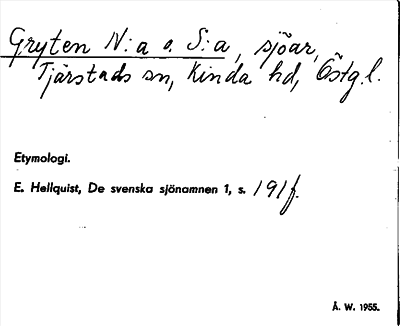 Gryten N:a o. S:a, sjöar,
Tjärstads sn, Kinda hd, Östg.l.
Etymologi.
E. Hellquist, De svenska sjönamnen 1, s. 191 f.
Å. W. 1955.